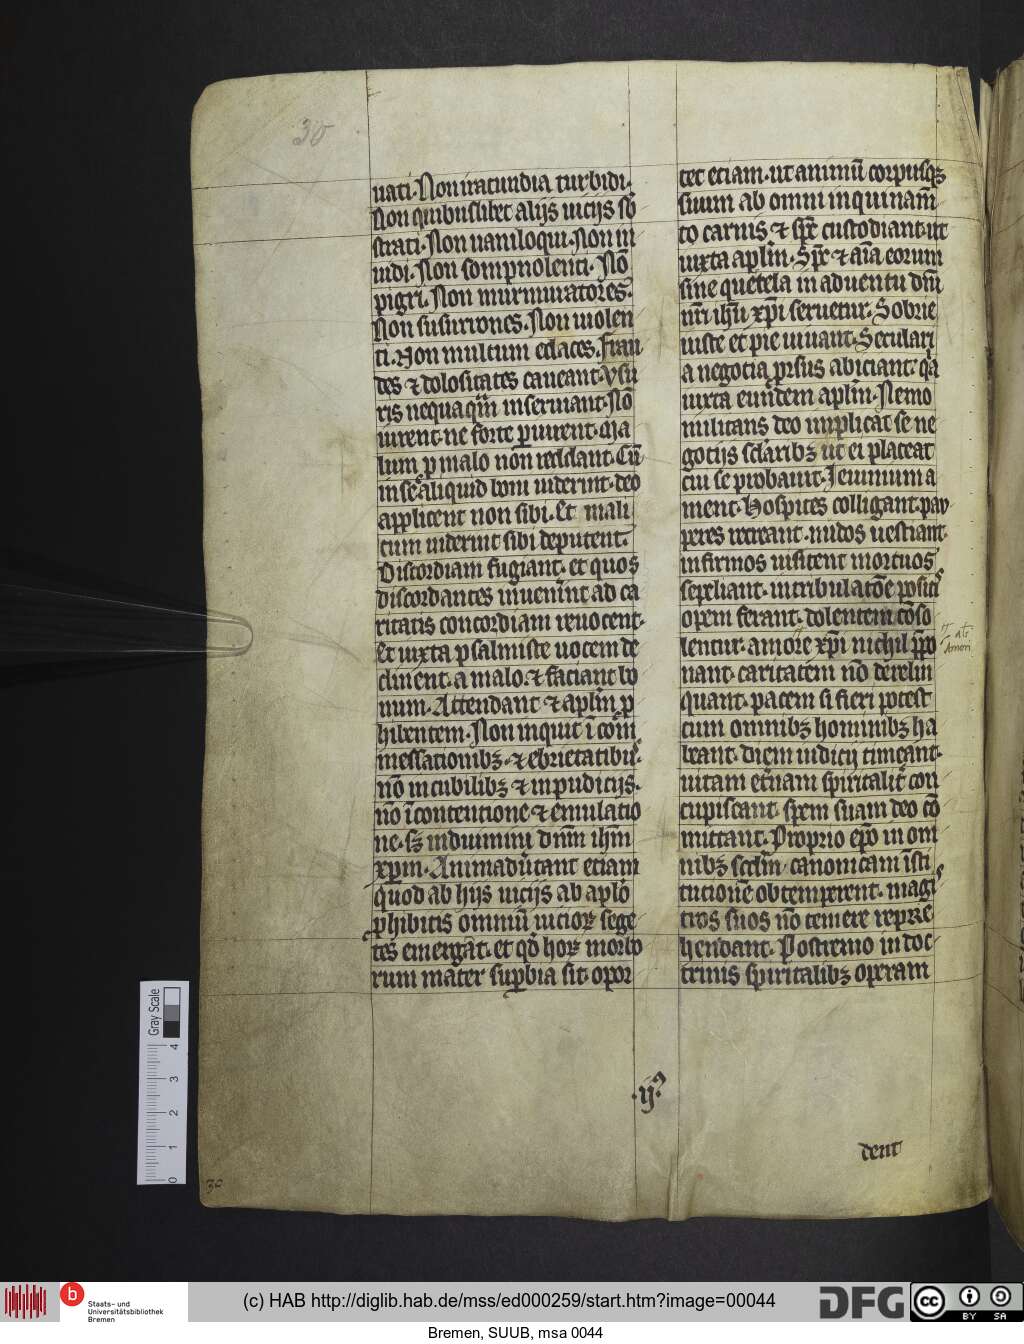 30
uati. Non iracundia turbidi.
Non quibuslibet alijs uicijs so᷒
strati. Non uaniloqui. Non in
uidi. Non sompnolenti. Nō
pigri. Non murmuratores.
Non susurrones. Non uiolen
ti. Non multum edaces. Frau
des ⁊ dolositates caueant. Vsu
ris nequaqͣm inseruiant. Nō
iurent. ne forte ꝑiurent. Ma
lum ꝓ malo non reddant. Cū
in se aliquid boni uiderint. deo
applicent non sibi. Et mali
cum uiderint sibi deputent.
Discordiam fugiant. et quos
discordantes inuenīnt ad ca
ritatis concordiam reuocent.
Et iuxta psalmiste uocem de
clinent. a malo. ⁊ faciant bo
num. Attendant ⁊ aplm̄ ꝓ
hibentem. Non inquit ī com̄
messationibꝫ. ⁊ ebrietatibus.
nō in cubilibꝫ ⁊ inpudicijs.
nō ī contentione ⁊ emulatio
ne. sꝫ induimini dnm̄ ihm̄
xp̄m. Animadūtant etiam
quod ab hijs uicijs ab aplō
ꝓhibitis omniū uicioꝝ sege
tes emergāt. et qd̄ hoꝝ morbo
rum mater suꝑbia sit. opor
tet etiam. ut animū corpusqꝫ
suum ab omni inquinam̄
to carnis ⁊ sp̄c custodiant. ut
iuxta aplm̄. Sp̄c ⁊ aīa eorum
sine querela in aduentu dnī
nr̄i ihū xp̄i seruetur. Sobrie
iuste et pie uiuant. Seculari
a negotia ꝓrsus abiciant. qa
iuxta eundem aplm̄. Nemo
militans deo implicat se ne
gotijs sclaribꝫ ut ei placeat
cui se probauit. Ieiunium a
ment. Hospites colligant. pau
peres recreant. nudos uestiant.
infirmos uisitent mortuos
sepeliant. in tribulatōe positis
opem ferant. dolentem cōso
lentur. amore xp̄i nichil ꝓpo
nant. caritatem nō derelin
quant. pacem si fieri potest
cum omnibꝫ hominibꝫ ha
beant. diem iudicij timeant.
uitam et̄nam spiritalit̄ con
cupiscant. spem suam deo cō
mittant. Proprio ep̄o in om
nibꝫ scdm̄ canonicam īsti
tucionē obtemperent. magis
tros suos nō temere repre
hendant. Postremo in doc
trinis spiritalibꝫ operam
.ij.
dent
30
Gray Scale
0 1 2 3 4
Staats- und
Universitätsbibliothek
Bremen
(c) HAB http://diglib.hab.de/mss/ed000259/start.htm?image=00044
DFG
cc BY SA
Bremen, SUUB, msa 0044